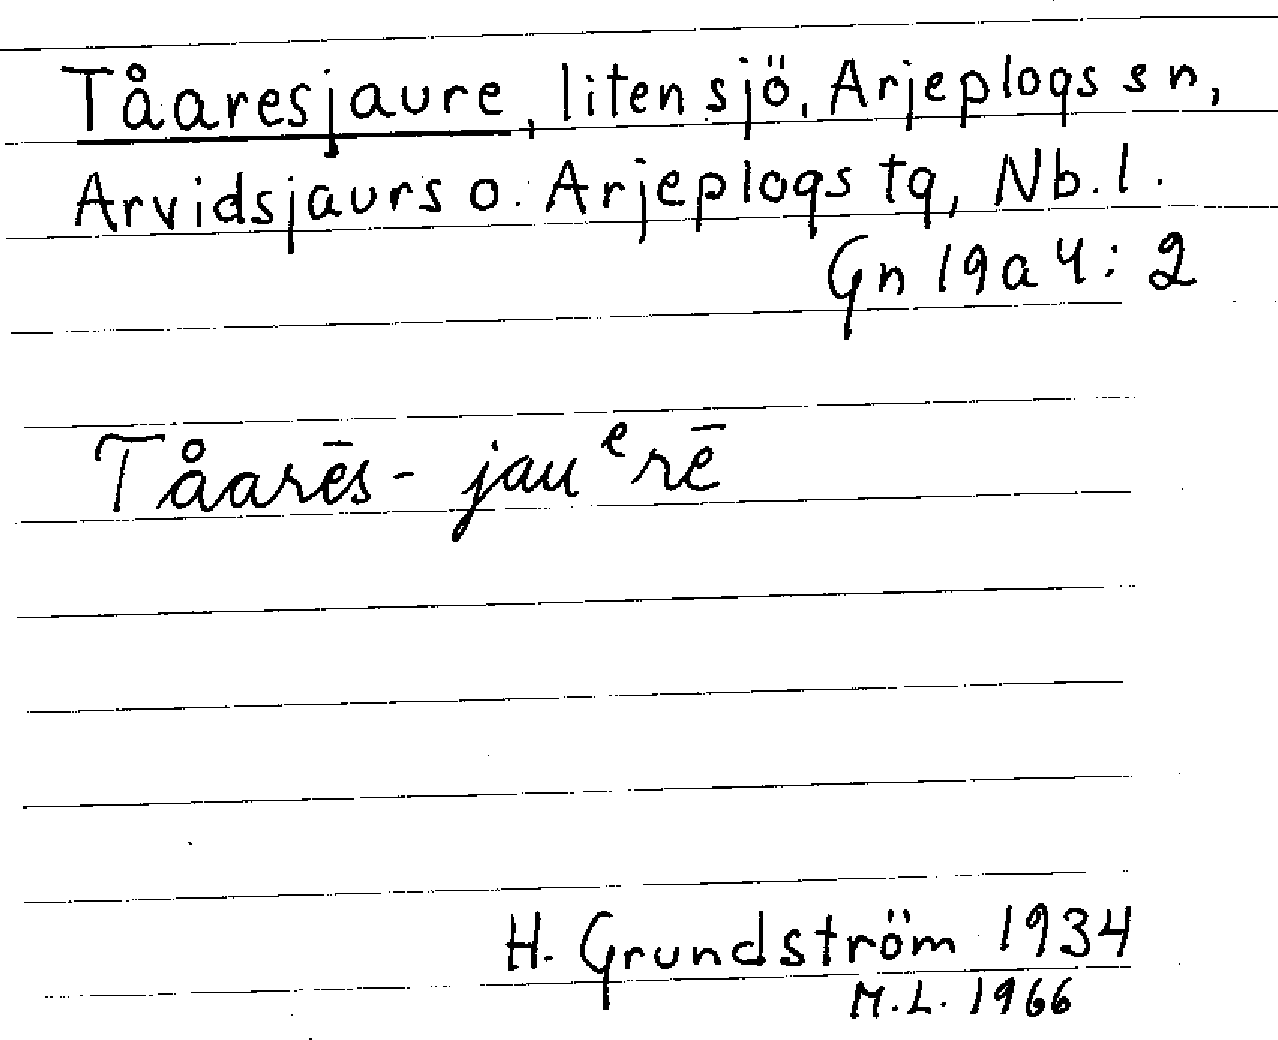 Tåaresjaure, liten sjö, Arjeplogs sn,
Arvidsjaurs o. Arjeplogs tg, Nb.l.
Gn 19a4:2
Tåarēs-jauᵉrē
H. Grundström 1934
M.L. 1966